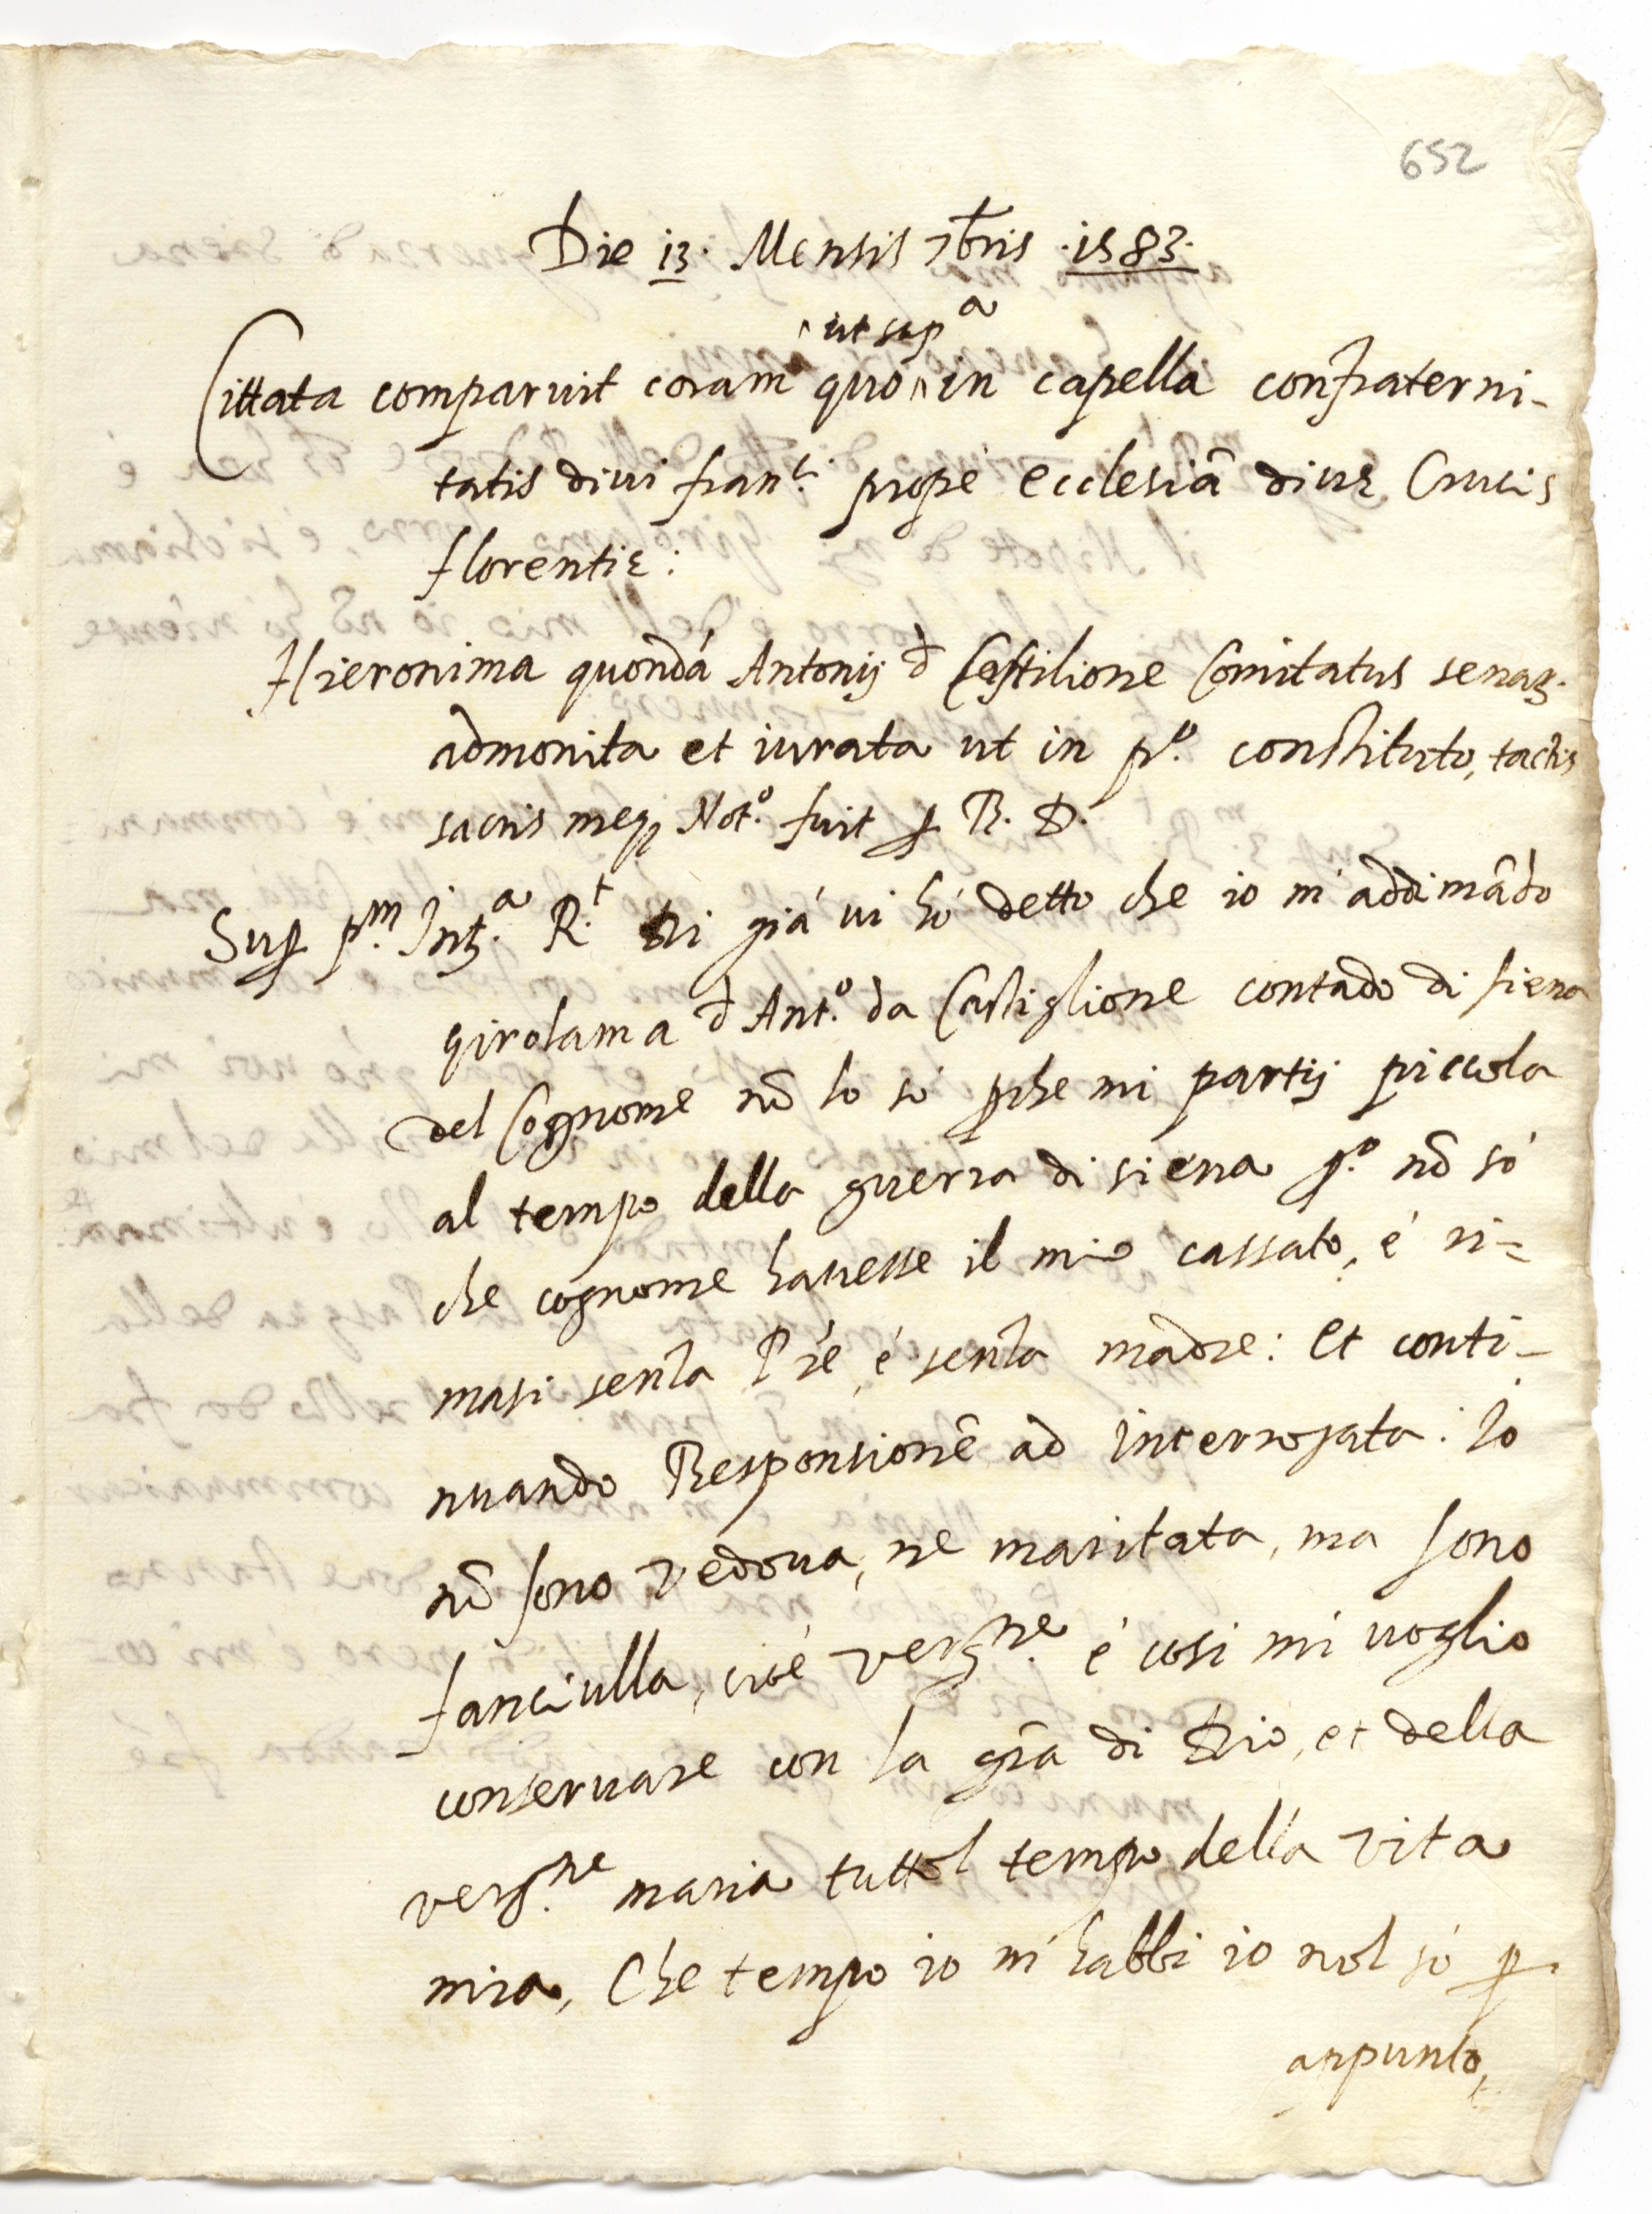 652
Die 13. Mensis 7bris .1583.
ut supa
Cittata comparuit coram quo in capella confraterni-
tatis divi franci. prope ecclesiã divę Crucis
florentię:
Hieronima quondã Antonij d Castilione Comitatus senar.
admonita et iurata ut in po. constituto, tactis
sacris Noto. fuit p R. D.
Sup pm. Inta. Rt. Di già vi hò detto che io m'addimãdo
girolama d Anto. da Castiglione contado di siena
del Cognome nõ lo sò pche mi partij piccola
al tempo della guerra di siena po. nõ sò
che cognome havesse il mio cassato, è ri=
masi senza Pre, è senza madre: Et conti-
nuando Responsionẽ ad interrogata: Io
nõ sono vedova, ne maritata, ma sono
fanciulla, cioè vergne. è cosi mi voglio
conservare con la grã di Dio, et della
vergne. maria tuttol tempo della vita
mia, Che tempo io m'habbi io nol sò p
appunto,